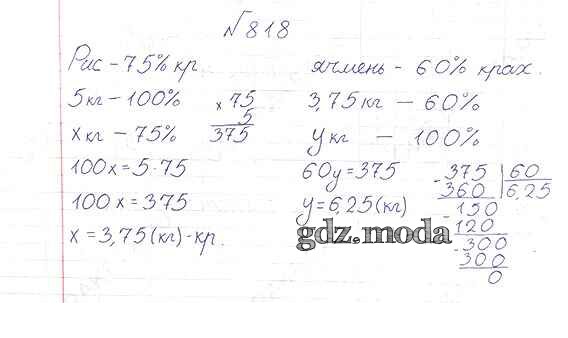 №818
Рис – 75% кр.
5 кг – 100%
x кг – 75%
100x = 5·75
100x = 375
x = 3,75 (кг) - кр.
× 75
5
375
ячмень - 60% крах.
3,75 кг – 60%
y кг – 100%
60y = 375
y = 6,25 (кг)
- 375 | 60
360 | 6,25
- 150
120
- 300
300
0
gdz.moda